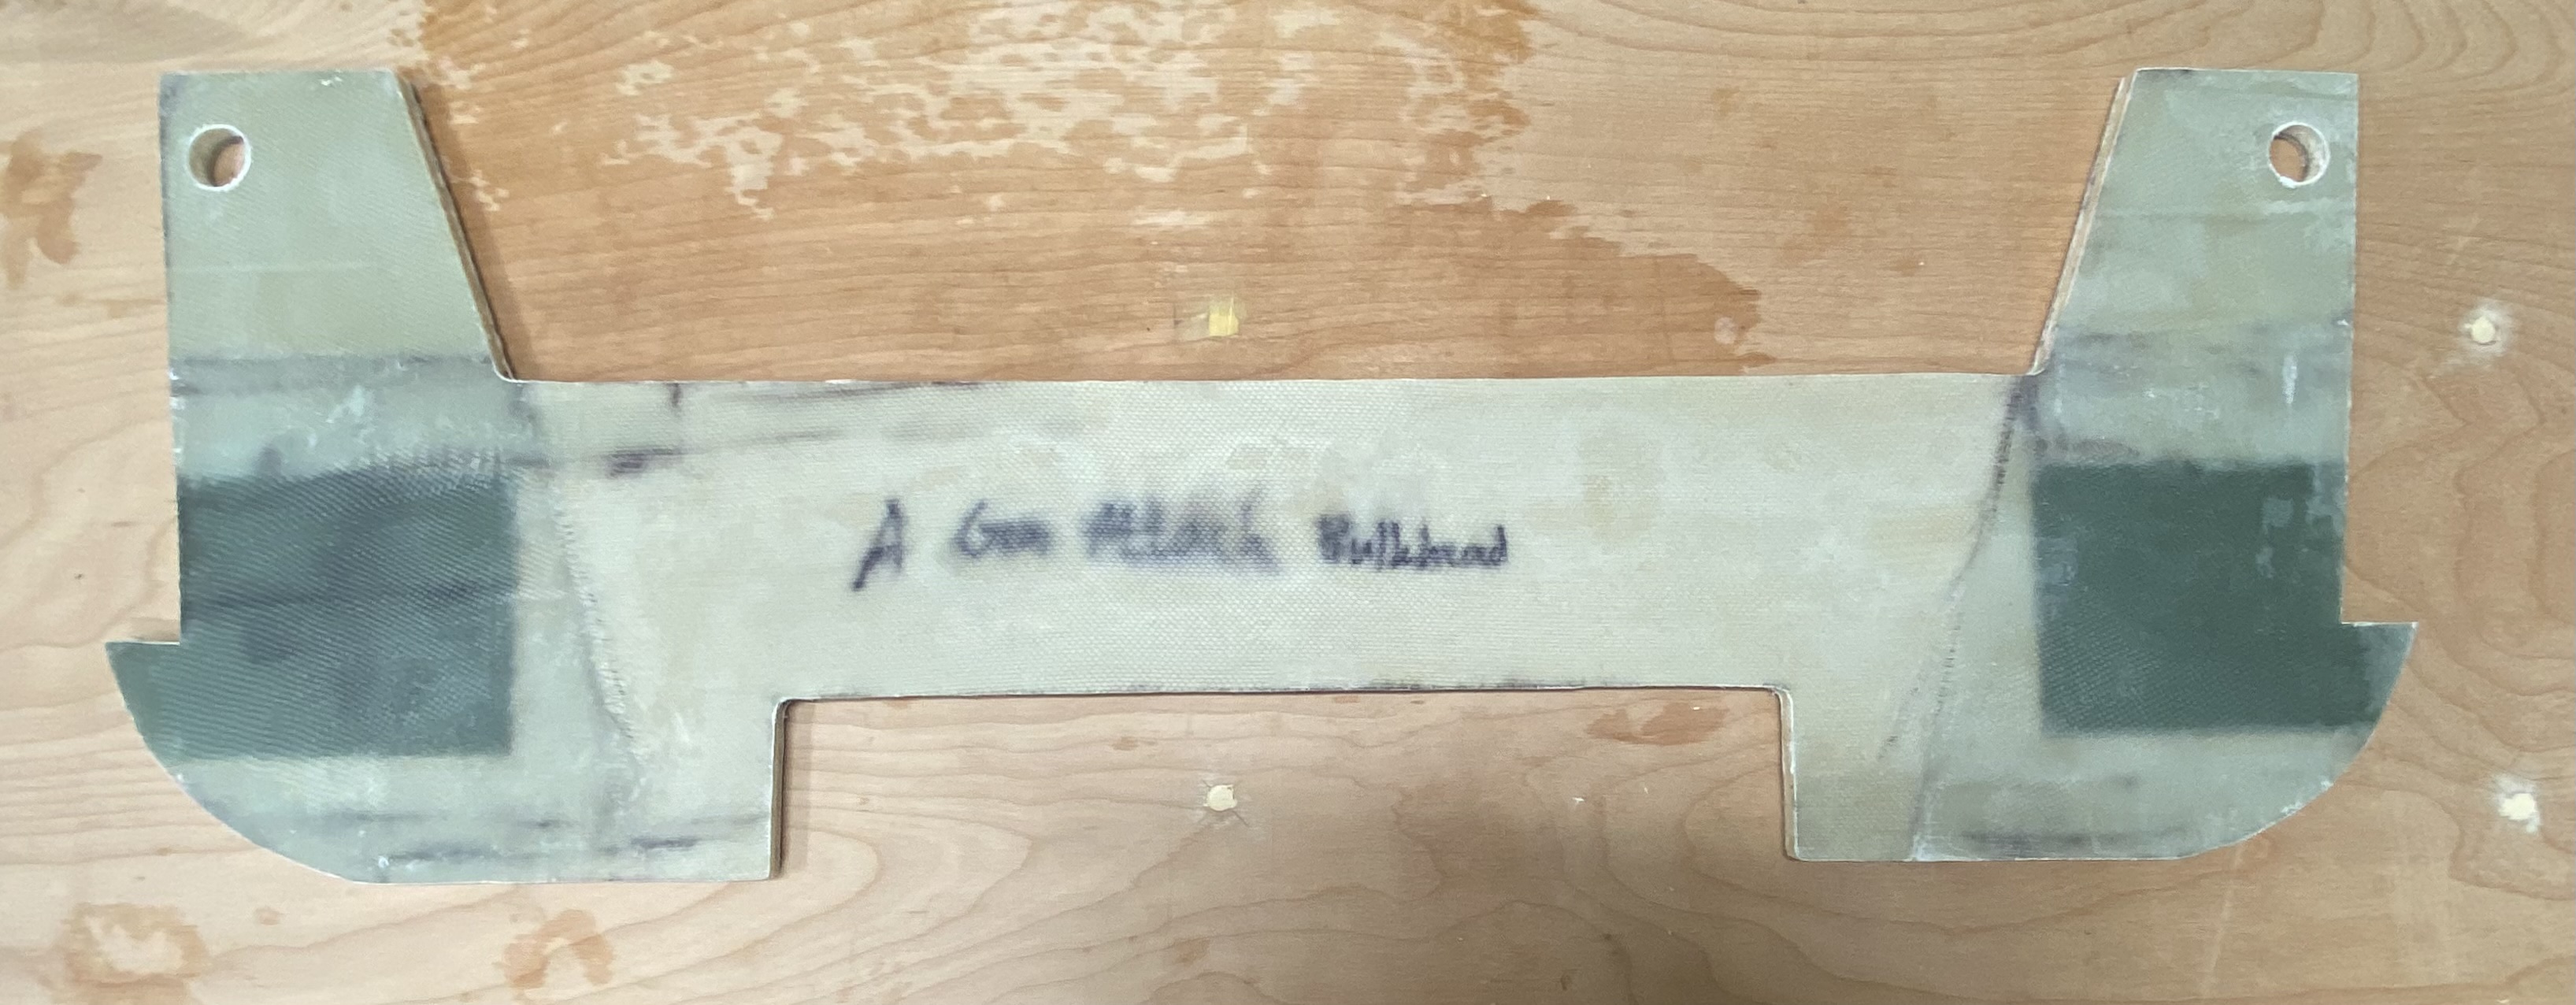 A Gear Attach Bulkhead